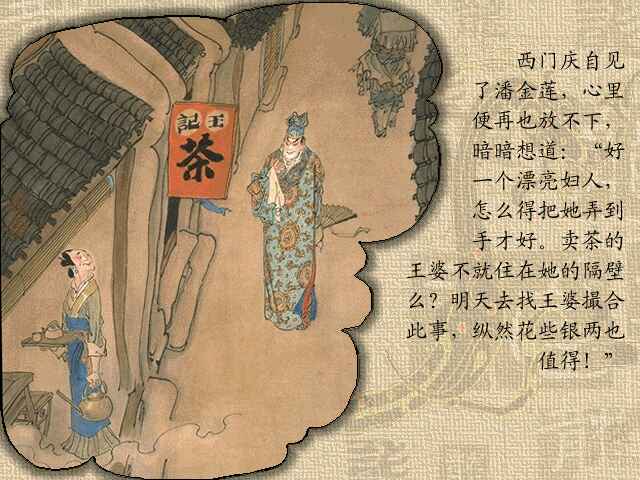 王記
茶
西门庆自见
了潘金莲，心里
便再也放不下，
暗暗想道：“好
一个漂亮妇人，
怎么得把她弄到
手才好。卖茶的
王婆不就住在她的隔壁
么？明天去找王婆撮合
此事，纵然花些银两也
值得！”